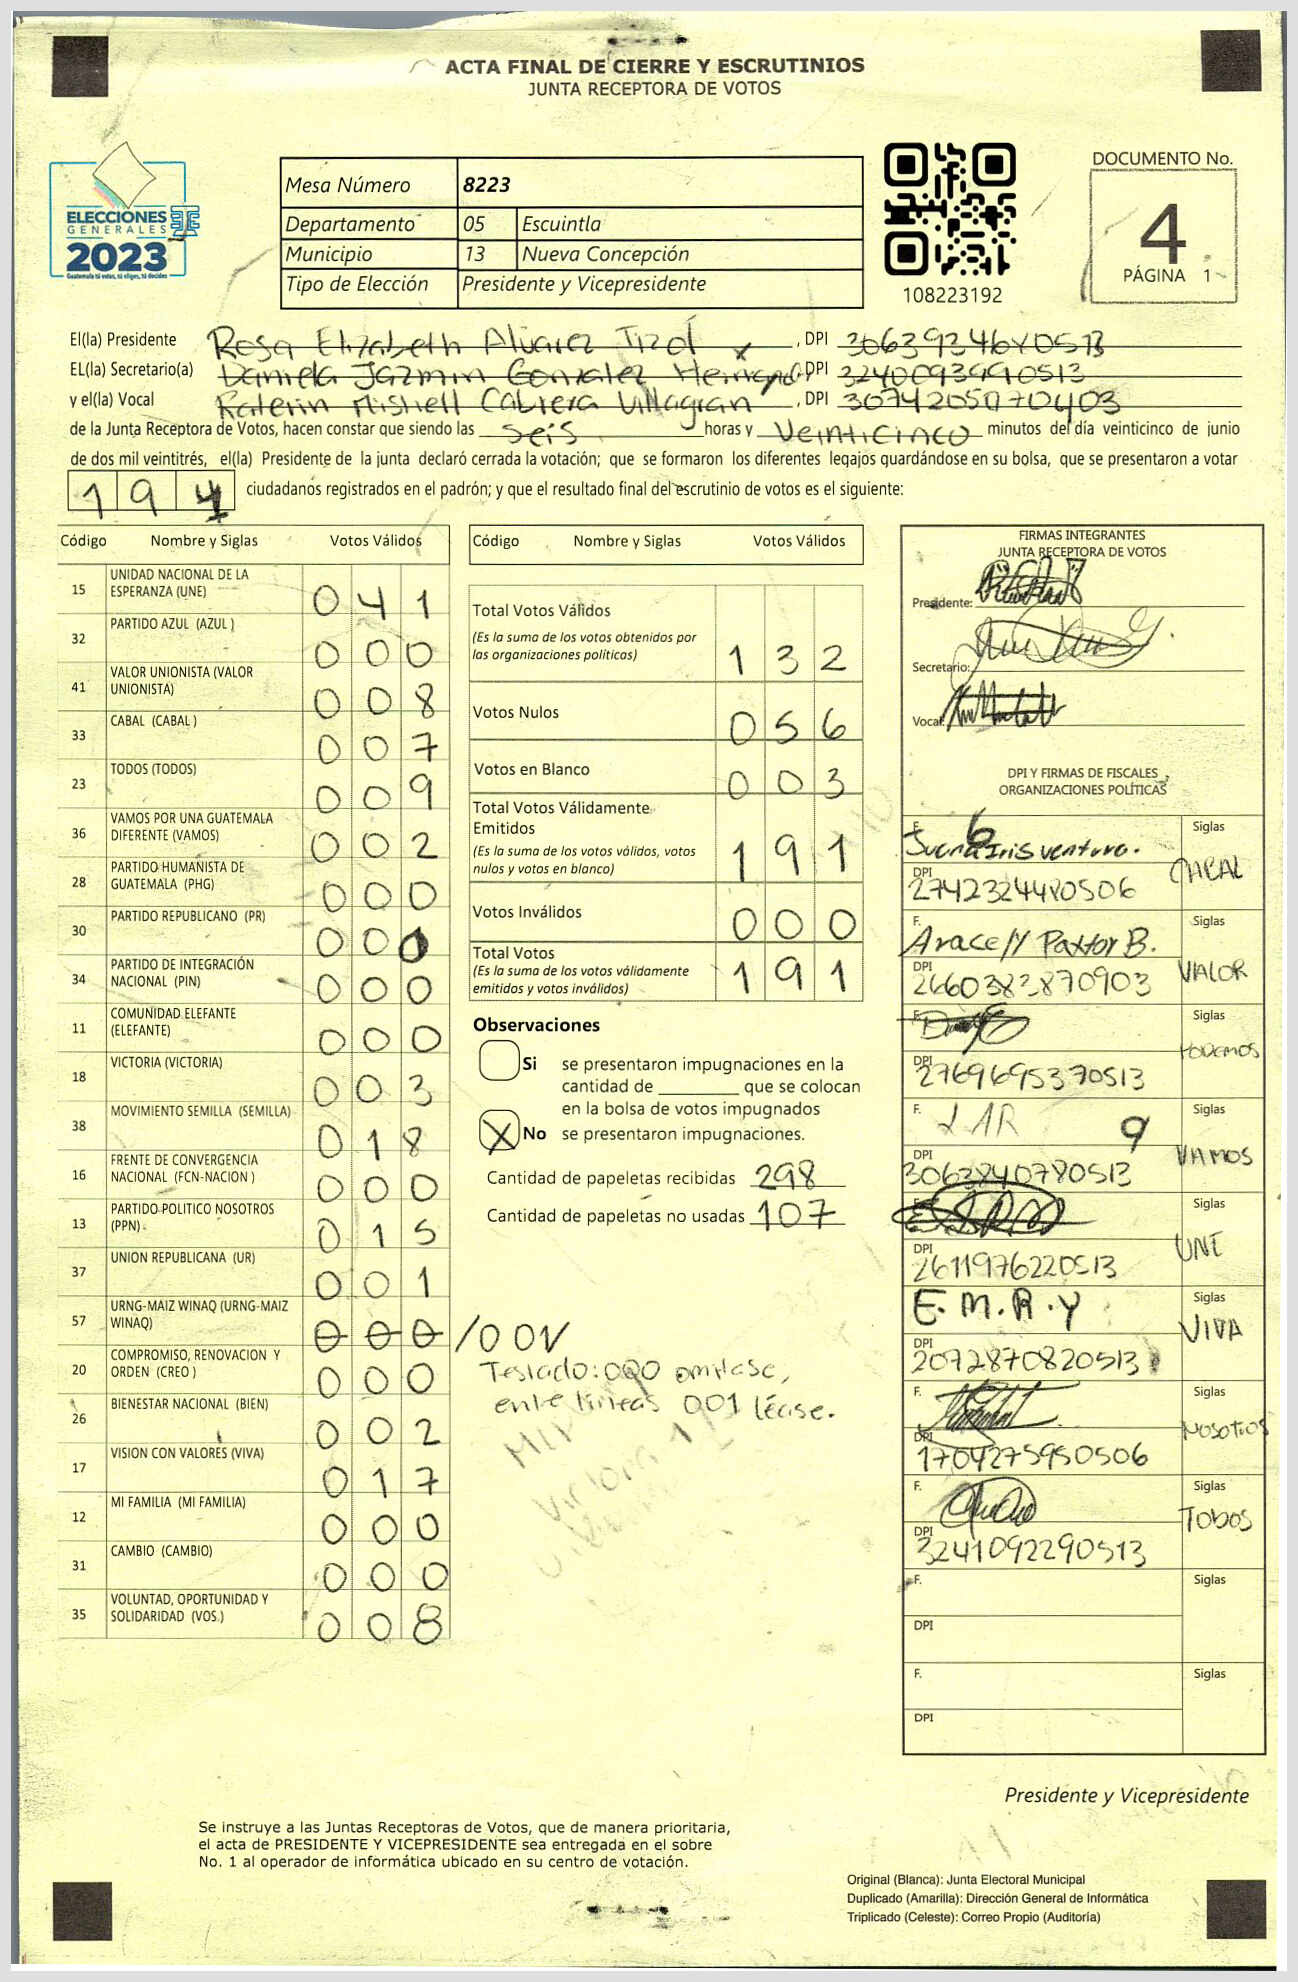 ACTA FINAL DE CIERRE Y ESCRUTINIOS
JUNTA RECEPTORA DE VOTOS
ELECCIONES
GENERALES
2023
Guatemala tú votas, tú eliges, tú decides
Mesa Número 8223
Departamento 05 Escuintla
Municipio 13 Nueva Concepción
Tipo de Elección Presidente y Vicepresidente
108223192
DOCUMENTO No.
4
PÁGINA 1
El(la) Presidente Rosa Elizabeth Alvarez Tizol, DPI
EL(la) Secretario(a) Daniela Jazmin Gonzalez, DPI
y el(la) Vocal Katerin Mishell Cabrera Villagran, DPI
de la Junta Receptora de Votos, hacen constar que siendo las seis horas y veinticinco minutos del día veinticinco de junio
de dos mil veintitrés, el(la) Presidente de la junta declaró cerrada la votación; que se formaron los diferentes legajos guardándose en su bolsa, que se presentaron a votar
19 ciudadanos registrados en el padrón; y que el resultado final del escrutinio de votos es el siguiente:
Código Nombre y Siglas Votos Válidos
15 UNIDAD NACIONAL DE LA ESPERANZA (UNE) 041
32 PARTIDO AZUL (AZUL ) 000
41 VALOR UNIONISTA (VALOR UNIONISTA) 008
33 CABAL (CABAL ) 007
23 TODOS (TODOS) 009
36 VAMOS POR UNA GUATEMALA DIFERENTE (VAMOS) 002
28 PARTIDO HUMANISTA DE GUATEMALA (PHG) 000
30 PARTIDO REPUBLICANO (PR) 00
34 PARTIDO DE INTEGRACIÓN NACIONAL (PIN) 000
11 COMUNIDAD ELEFANTE (ELEFANTE) 000
18 VICTORIA (VICTORIA) 003
38 MOVIMIENTO SEMILLA (SEMILLA) 018
16 FRENTE DE CONVERGENCIA NACIONAL (FCN-NACION ) 000
13 PARTIDO POLITICO NOSOTROS (PPN) 015
37 UNION REPUBLICANA (UR) 001
57 URNG-MAIZ WINAQ (URNG-MAIZ WINAQ) 000 /001/
20 COMPROMISO, RENOVACION Y ORDEN (CREO ) 000
26 BIENESTAR NACIONAL (BIEN) 002
17 VISION CON VALORES (VIVA) 017
12 MI FAMILIA (MI FAMILIA) 000
31 CAMBIO (CAMBIO) 000
35 VOLUNTAD, OPORTUNIDAD Y SOLIDARIDAD (VOS.) 008
Código Nombre y Siglas Votos Válidos
Total Votos Válidos
(Es la suma de los votos obtenidos por
las organizaciones politicas) 132
Votos Nulos 056
Votos en Blanco 003
Total Votos Válidamente
Emitidos
(Es la suma de los votos válidos, votos
nulos y votos en blanco) 191
Votos Inválidos 000
Total Votos
(Es la suma de los votos válidamente
emitidos y votos inválidos) 191
Observaciones
Si se presentaron impugnaciones en la
cantidad de ________ que se colocan
en la bolsa de votos impugnados
X No se presentaron impugnaciones.
Cantidad de papeletas recibidas 298
Cantidad de papeletas no usadas 107
Testado: 000 omitase,
entre lineas 001 léase.
FIRMAS INTEGRANTES
JUNTA RECEPTORA DE VOTOS
Presidente:
Secretario:
Vocal:
DPI Y FIRMAS DE FISCALES
ORGANIZACIONES POLÍTICAS
F. Juana Iris ventura. Siglas
DPI 2742324480506 CABAL
F. Aracely Paxtor B. Siglas
DPI VALOR
F. Siglas
DPI 2769695370513 PODEMOS
F. LAR 9 Siglas
DPI 3063840780513 VAMOS
F.
DPI 2611976220513 UNE
F. E.M.R.Y Siglas
DPI 2072870820513 VIVA
F. Siglas
DPI 1704275950506 NOSOTROS
F. Siglas
DPI 3241092290513 TODOS
F. Siglas
DPI
F. Siglas
DPI
Presidente y Vicepresidente
Se instruye a las Juntas Receptoras de Votos, que de manera prioritaria,
el acta de PRESIDENTE Y VICEPRESIDENTE sea entregada en el sobre
No. 1 al operador de informática ubicado en su centro de votación.
Original (Blanca): Junta Electoral Municipal
Duplicado (Amarilla): Dirección General de Informática
Triplicado (Celeste): Correo Propio (Auditoría)